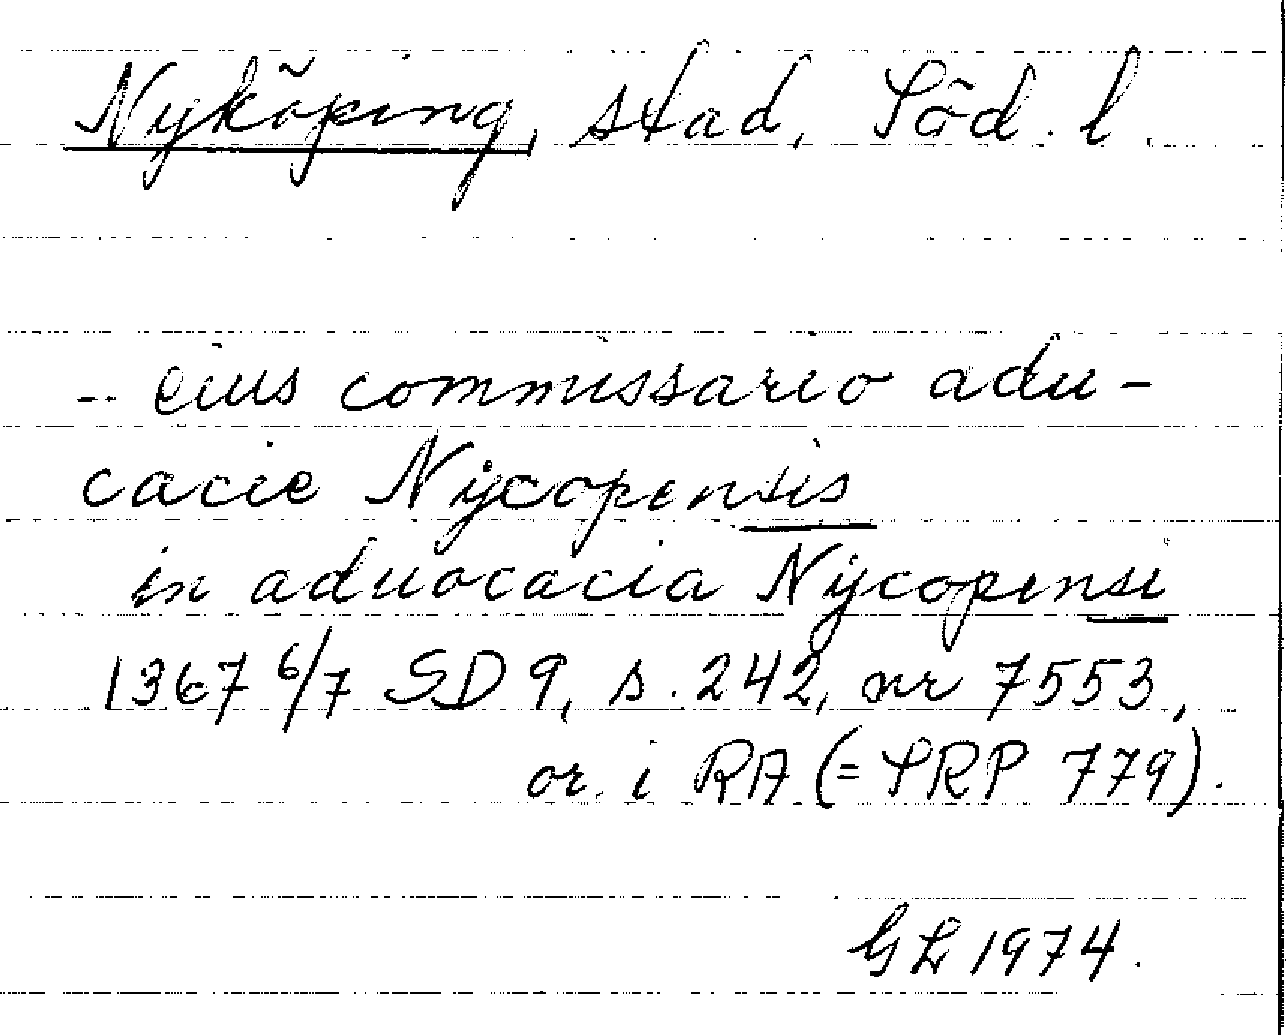 Nyköping, stad, Söd. l.
-- eius commissario adu-
cacie Nÿcopensis
in aduocacia Nÿcopensi
1367 6/7 SD 9, s. 242, nr 7553,
or. i RA (= SRP 779).
GL 1974.